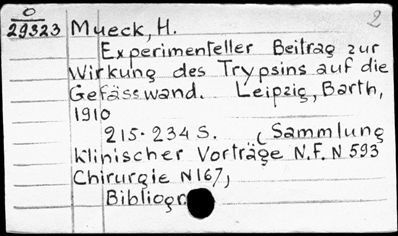 O
29323 Mueck, H.
2
Experimenteller Beitrag zur
Wirkung des Trypsins auf die
Gefässwand. Leipzig, Barth,
1910
215-234 S. (Sammlung
klinischer Vorträge N.F. N 593
Chirurgie N167)
Bibliogr